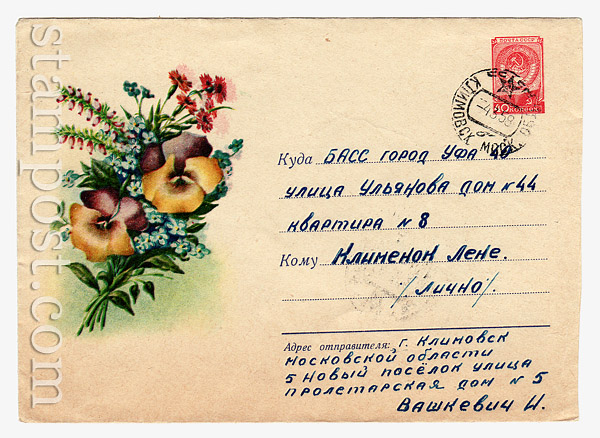 ПОЧТА СССР
40 КОП.
КЛИМОВСК МОСК. ОБЛ.
Куда БАСС ГОРОД УФА 40
УЛИЦА УЛЬЯНОВА ДОМ №44
КВАРТИРА №8
Кому Клименок Лене.
/Лично/.
Адрес отправителя: г. Климовск
Московской области
5 Новый посёлок улица
Пролетарская дом №5
Вашкевич И.
stampost.com